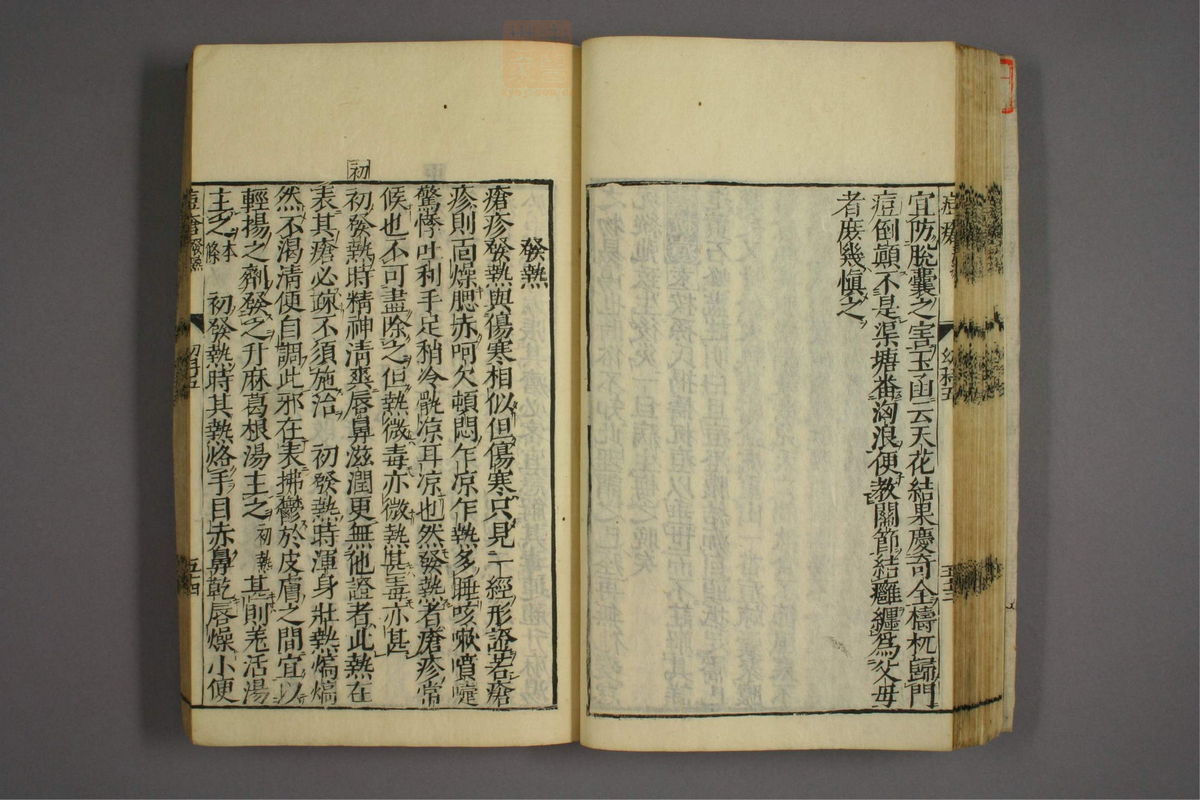 宜防脫囊之害玉函云天花結果慶奇全檮杌歸門
痘倒顛不是渠塘畨洶浪便教關節結癰纏為父母
者庶幾慎之
發熱
瘡疹發熱與傷寒相似但傷寒只見一經形證若瘡
疹則面燥腮赤呵欠頓悶乍凉乍熱多睡咳嗽噴嚏
驚悸吐利手足稍冷骩凉耳凉也然發熱者瘡疹常
候也不可盡除之但熱微毒亦微熱甚毒亦甚
初
初發熱時精神清爽唇鼻滋潤更無他證者此熱在
表其瘡必疎不須施治 初發熱時渾身壯熱熇熇
然不渴清便自調此邪在表拂鬱於皮膚之間宜以
輕揚之劑發之升麻葛根湯主之 初熱 甚則羗活湯
主之 本條 初發熱時其熱烙手目赤鼻乾唇燥小便
痘瘡 發熱 幼科五 五十四